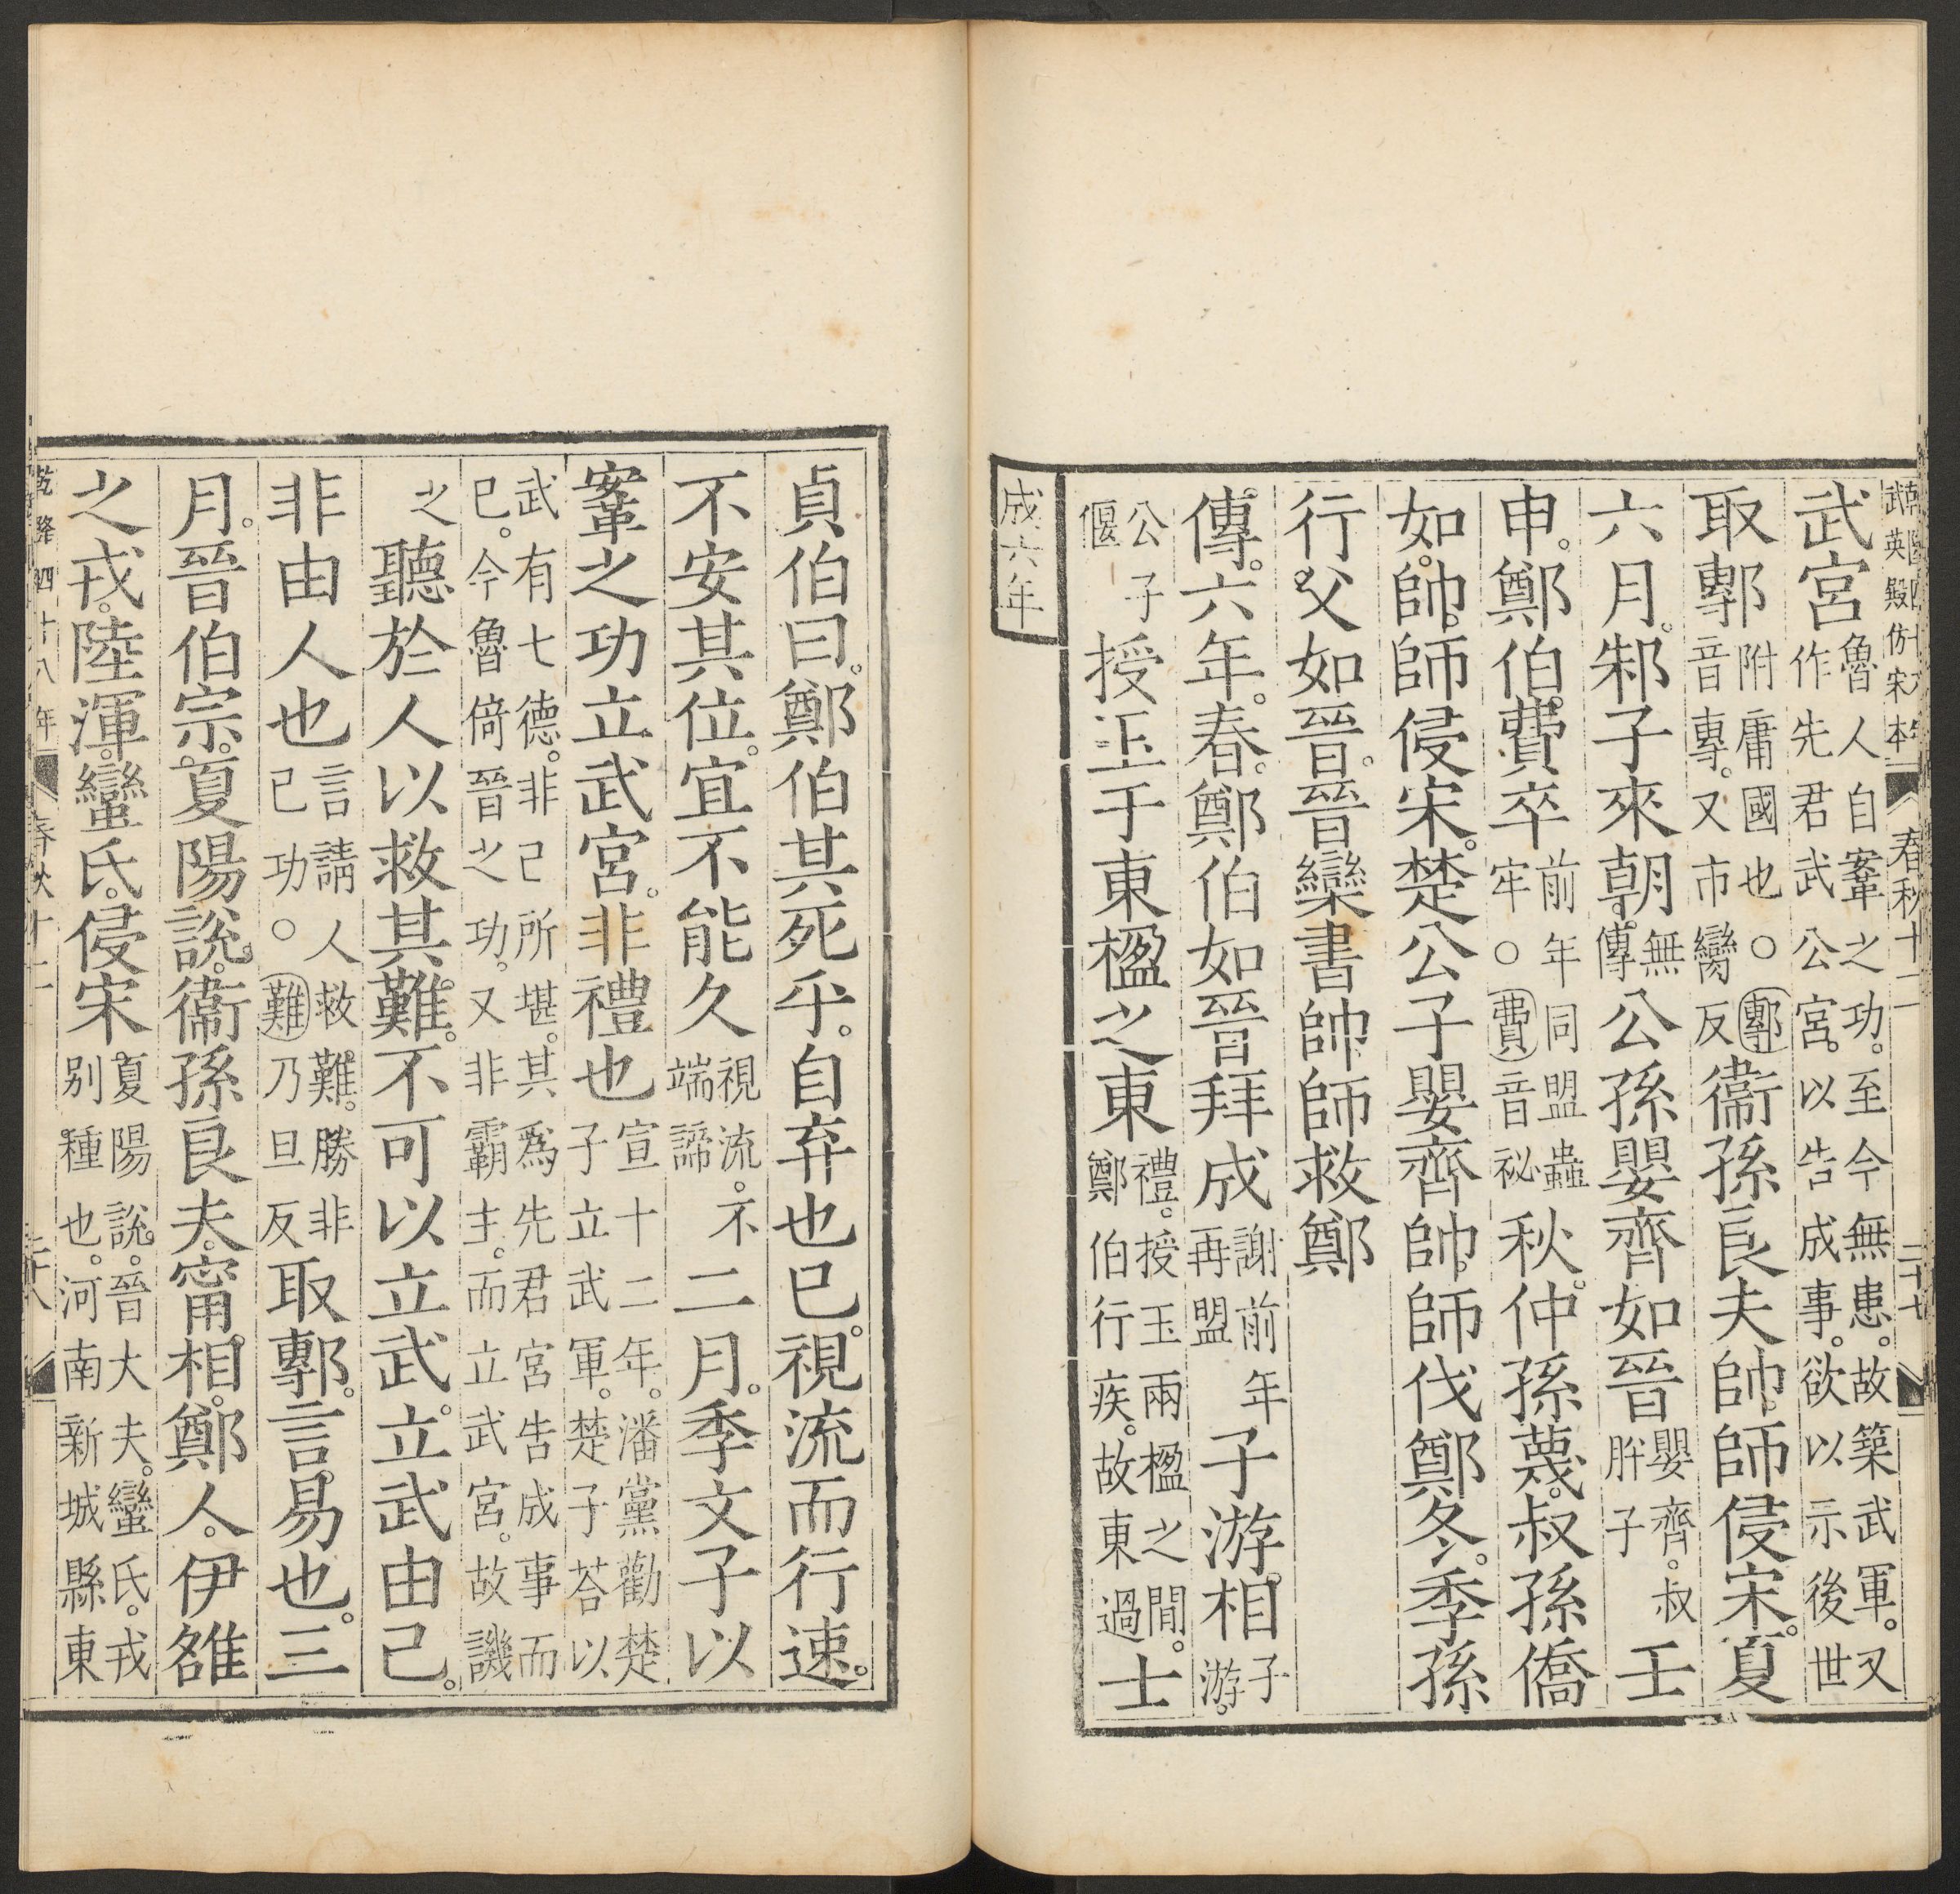 武英殿仿宋本
春秋十二
二十七
武宮魯人自鞌之功。至今無患。故築武軍。又作先君武公宮。以告成事。欲以示後世
取鄟附庸國也○鄟音專。又市臠反衞孫良夫帥師侵宋。夏
六月。邾子來朝。無傳公孫嬰齊如晉嬰齊。叔肸子壬
申。鄭伯費卒前年同盟蟲牢○費音祕秋。仲孫蔑。叔孫僑
如。帥師侵宋。楚公子嬰齊帥師伐鄭冬。季孫
行父如晉。晉欒書帥師救鄭
傳。六年。春。鄭伯如晉拜成謝前年再盟子游。相子游。
公子偃授玉于東楹之東禮。授玉兩楹之閒。鄭伯行疾。故東過士
成六年
貞伯曰。鄭伯其死乎。自弃也已。視流而行速。
不安其位。宜不能久視流。不端諦二月。季文子以
鞌之功立武宮。非禮也宣十二年。潘黨勸楚子立武軍。楚子荅以
武有七德。非己所堪。其爲先君宮告成事而已。今魯倚晉之功。又非霸主。而立武宮。故譏
之聽於人以救其難。不可以立武。立武由己。
非由人也言請人救難。勝非己功。○難乃旦反取鄟。言易也。三
月。晉伯宗。夏陽說。衞孫良夫。甯相。鄭人。伊雒
之戎。陸渾。蠻氏。侵宋夏陽說。晉大夫。蠻氏。戎别種也。河南新城縣東
乾隆四十八年
春秋十二
二十八